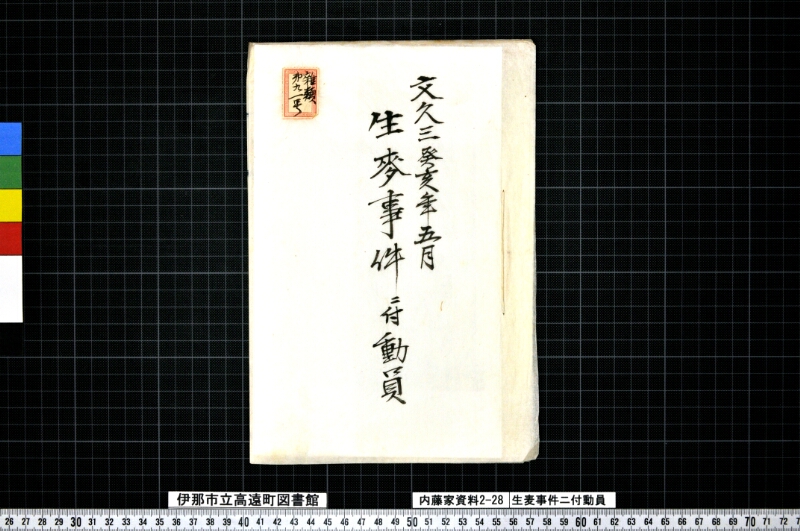 文久三癸亥年五月
生麥事件ニ付動員
雑類
第九一号
伊那市立高遠町図書館
内藤家資料2-28
生麦事件ニ付動員
26 27 28 29 30 31 32 33 34 35 36 37 38 39 40 41 42 43 44 45 46 47 48 49 50 51 52 53 54 55 56 57 58 59 60 61 62 63 64 65 66 67 68 69 70 71 72